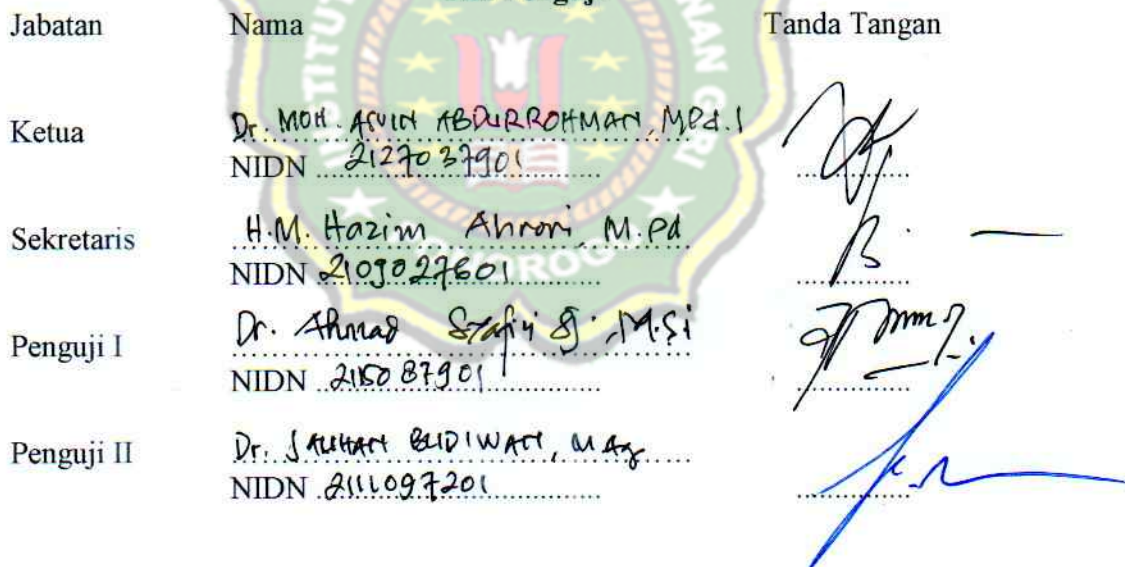 Jabatan Nama Tanda Tangan
Ketua Dr. MOH. ALVIN ABDURROHMAN, M.Pd.I
NIDN 2127037901
Sekretaris H.M. Hazim Ahrori, M.Pd
NIDN 2109027601
Penguji I Dr. Ahmad Syafi'i SJ, M.Si
NIDN 2115087901
Penguji II Dr. JAUHAN BUDIWAN, M.Ag
NIDN 2111097201